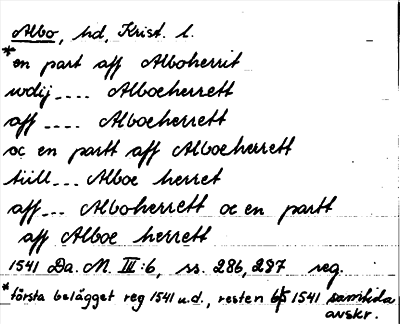 Albo, hd, Krist. l.
*en part aff Alboherrit
wdij .... Alboeherrett
aff .... Alboeherrett
oc en partt aff Alboeherrett
tiill... Alboe herret
aff... Alboherrett oc en partt
aff Alboe herrett
1541 Da. M. III:6, ss. 286, 287 reg.
*första belägget reg 1541 u.d., resten 1541 samtida
avskr.